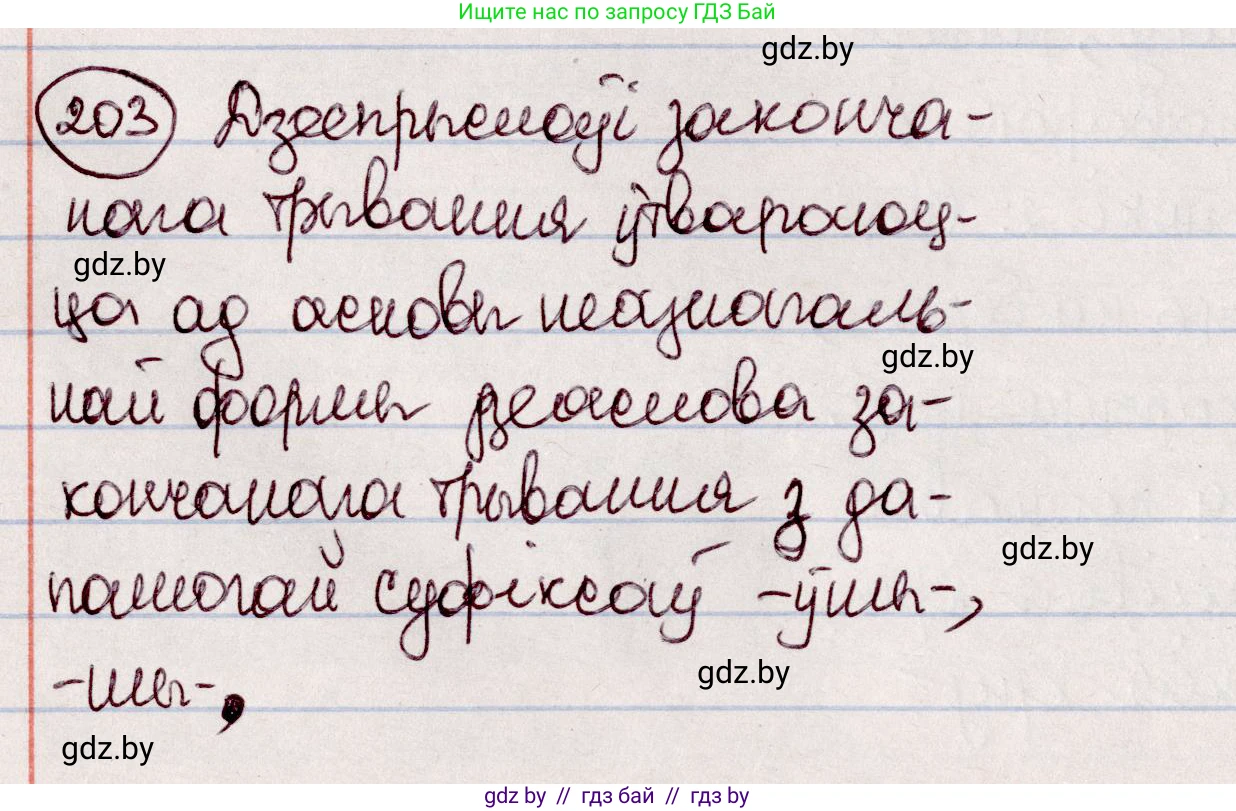 Ищите нас по запросу ГДЗ Бай
gdz.by
203 Дзеепрыслоўі законча-
нага трывання ўтвараюц-
gdz.by
ца ад асновы неазнагаль-
gdz.by
най формы дзеяслова за-
кончанага трывання з да-
gdz.by
памогай суфіксаў -ўшы-,
-шы-,
gdz.by
gdz.by
gdz.by // гдз бай // гдз by